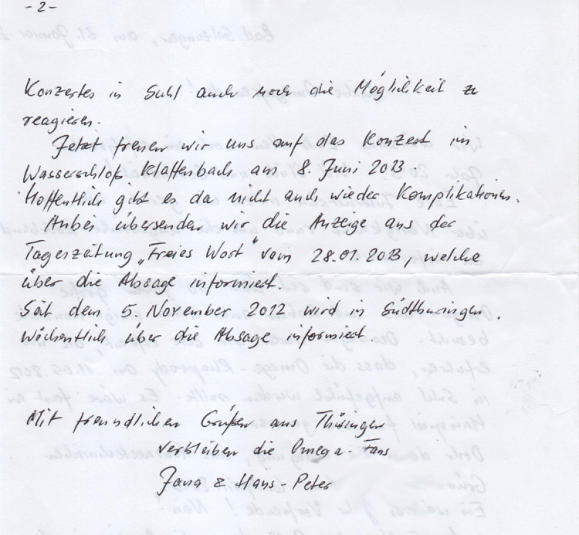 -2-
Konzertes in Suhl auch noch die Möglichkeit zu
reagieren.
Jetzt freuen wir uns auf das Konzert im
Wasserschloß Klaffenbach am 8. Juni 2013.
Hoffentlich gibt es da nicht auch wieder Komplikationen.
Anbei übersenden wir die Anzeige aus der
Tageszeitung "Freies Wort" vom 28.01.2013, welche
über die Absage informiert.
Seit dem 5. November 2012 wird in Südthüringen.
Wöchentlich über die Absage informiert.
Mit freundlichen Grüßen aus Thüringen
verbleiben die Omega-Fans
Jana & Hans-Peter